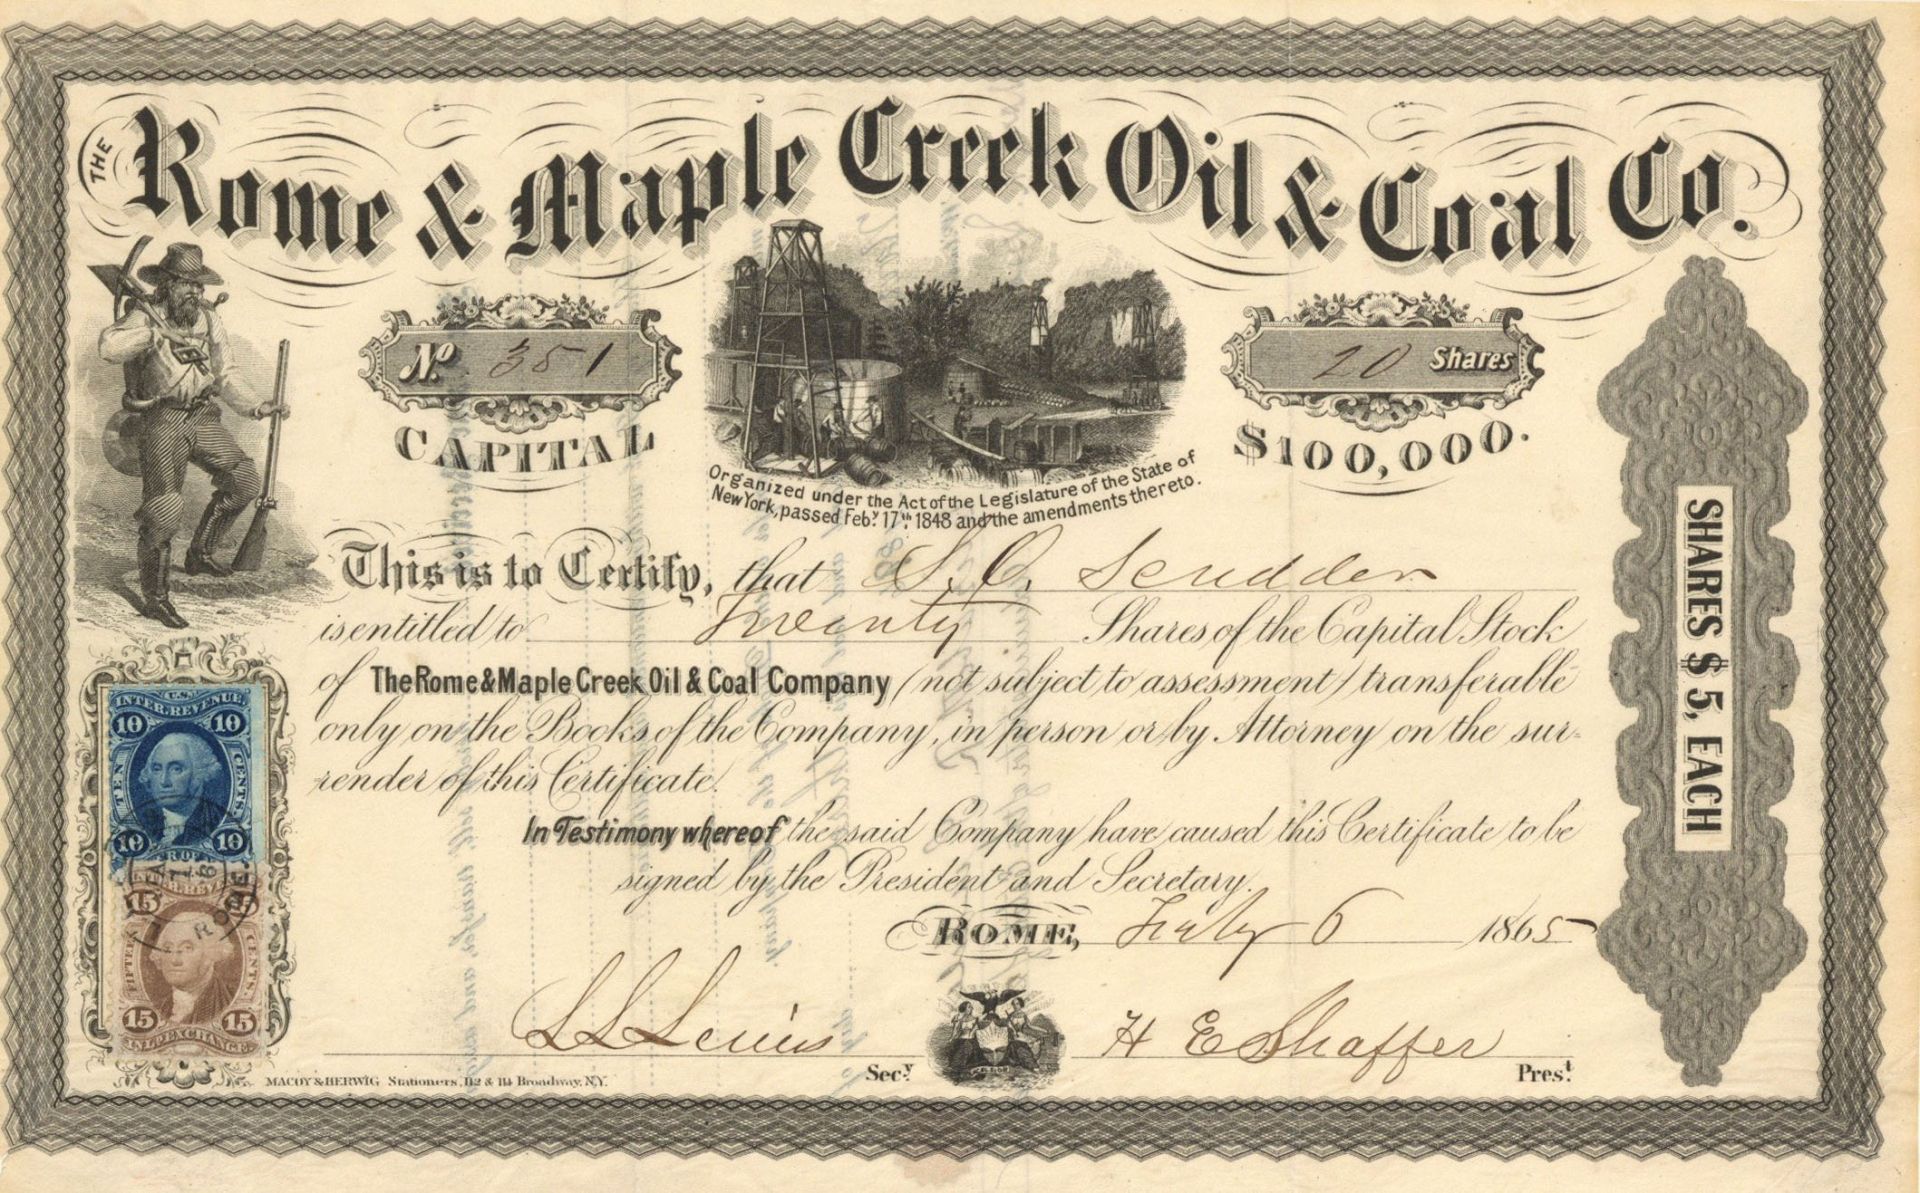 THE
Rome & Maple Creek Oil & Coal Co.
No. 351
20 Shares
CAPITAL
$100,000.
Organized under the Act of the Legislature of the State of
New York, passed Feby. 17th. 1848 and the amendments thereto.
This is to Certify, that S. O. Scudder
is entitled to Twenty Shares of the Capital Stock
of The Rome & Maple Creek Oil & Coal Company (not subject to assessment) transferable
only on the Books of the Company, in person or by Attorney on the sur-
render of this Certificate.
In Testimony whereof the said Company have caused this Certificate to be
signed by the President and Secretary.
ROME, July 6 1865
L L Lewis Secy.
H E Shaffer Prest.
MACOY & HERWIG Stationers, 112 & 114 Broadway, N.Y.
SHARES $ 5, EACH
U.S.
INTER. REVENUE
10 10
TEN CENTS.
10 10
INTER. REVENUE
15 15
FIFTEEN CENTS.
15 15
EXCHANGE
ROME